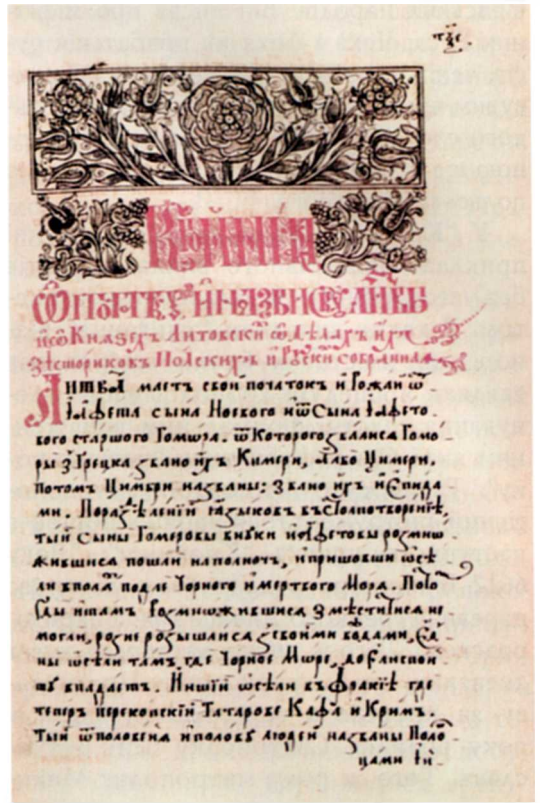 Кройника
Ѿ початкѹ и назвискѹ Литвы
и ѿ Княѕех Литовских ѿ дѣлах их
З гсториков Полских и Рѹских собранная
Литва маетъ свои початокъ и рожай ѿ
Іафета сына Ноевого и ѿ сына Іафето
вого старшого Гомѡра. ѿ Которого звалися Гомо
ры з Грецка звано ихъ Кимери, албо Цимери,
потомъ Цимбри названы; звано ихъ и Епида
ми. По раздѣленїи газыковъ въ Столпотворенїе,
тый сыны Гомеровы внѹки Іафетовы розмнож
жившися пошли на полночъ, и пришовши осѣ
ли в полях подле Чорного и мертвого Моря. Поло
сѹды и тамъ розмножившися змѣститися не
могли, розно розышлися з своими вождами, Єд
ны осѣли тамъ где Чорное Море, до Єлиспон
тѹ впадаетъ. Иншїи осѣли въ Фракїе где
теперъ перекопскїи Татарове Кафѹ и Кримъ
Тый ѿ полованя и половъ людей названы Поло
цами